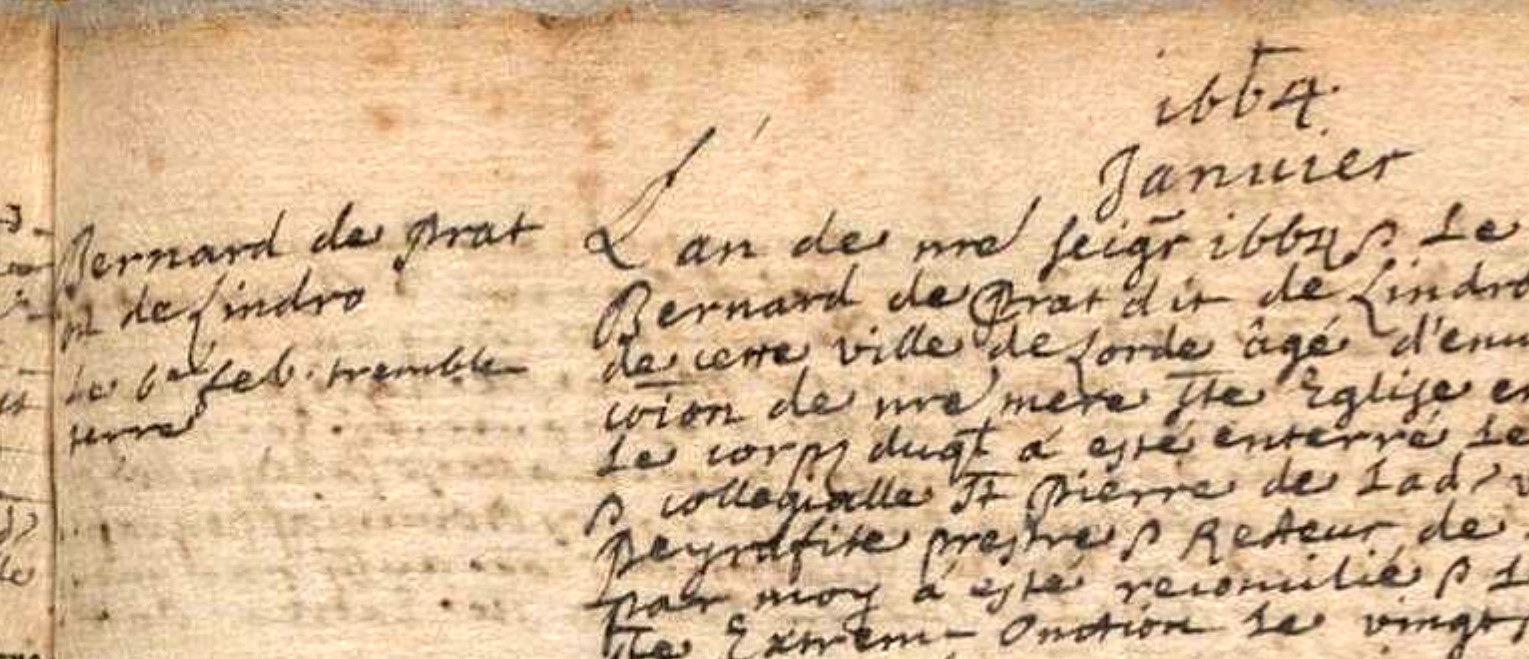 1664.
Januier
Bernard de prat
m de Lindro
Le 6e feb. tremble
terre
L'an de nre seigr 1664 & le
Bernard de Prat dit de Lindro
de cette ville de Lorde âgé d'enui
cõion de nre mere Ste Eglise en
Le corps duql a esté enterré Le
& collegialle St Pierre de Lad.
Peyrafite prestre & Recteur de
par moy a esté reconcilié &
Ste Extrem-Onction Le vingt